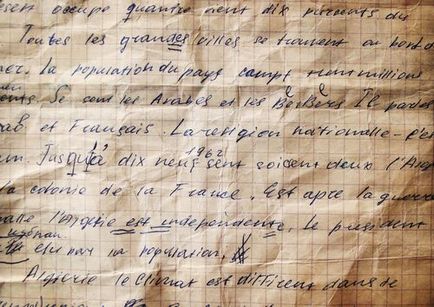 occupe quantre dix du
Toutes les grandes villes se trouvent au bord d
mer. La population du pays compt million
Se cont les Arabes et les Bérbérs Il parles
et Français. La religion nationalle - c'es
1962
Jusqu'à dix neuf sent soisent deux l'A
la colonie de la France. Est apre la guerre
l'Algérie est independente. Le president
elu par la population.
Algerie le climat est different dans de